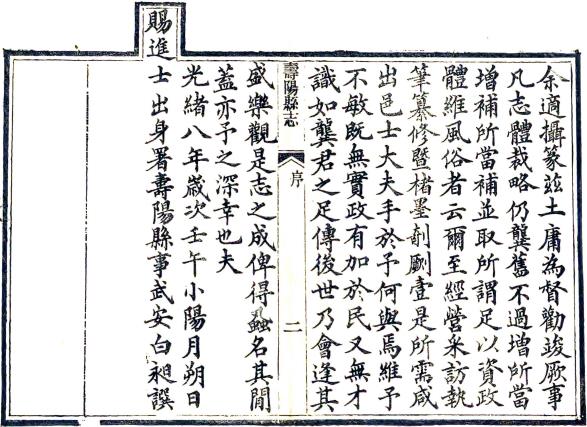 余適攝篆茲土庸為督勸竣厥事
凡志體裁略仍龔舊不過增所當
增補所當補並取所謂足以資政
體維風俗者云爾至經營采訪執
筆纂修暨楮墨剞劂壹是所需咸
出邑士大夫手於予何與焉維予
不敏既無實政有加於民又無才
識如龔君之足傳後世乃會逢其
壽陽縣志
序
二
盛樂觀是志之成俾得蝨名其閒
蓋亦予之深幸也夫
光緒八年歲次壬午小陽月朔日
賜進士出身署壽陽縣事武安白昶譔